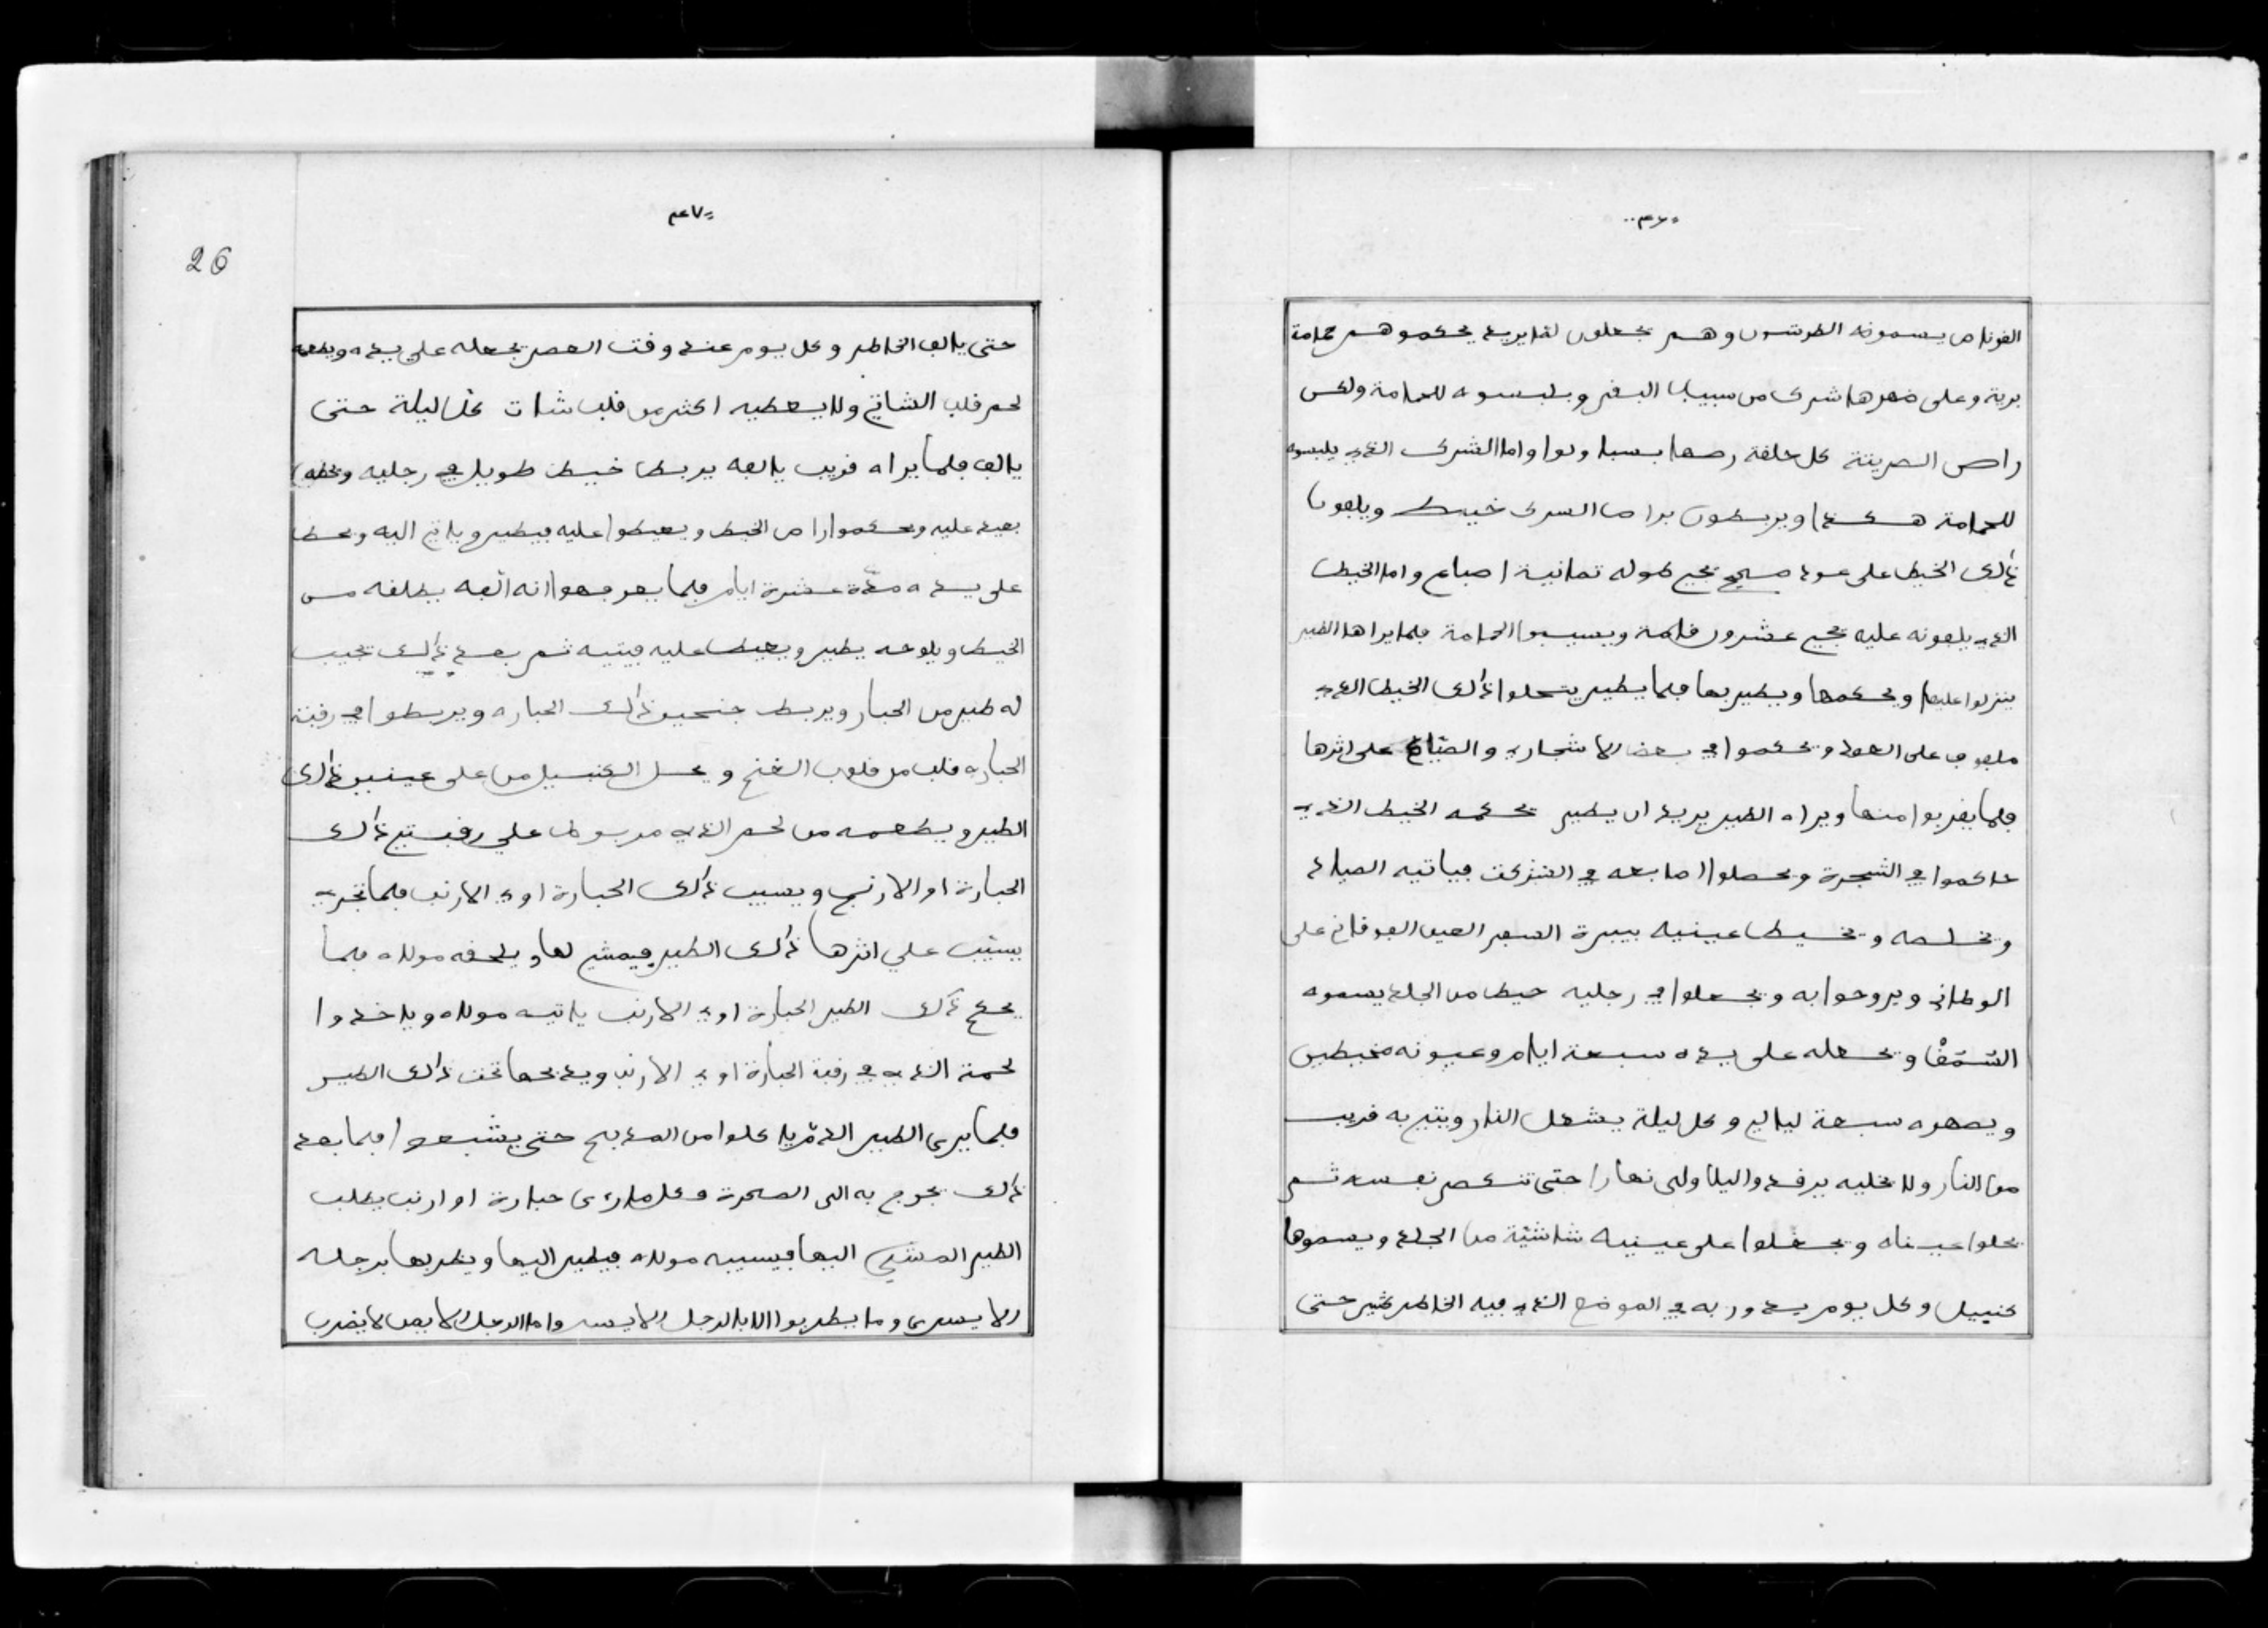 ٣٦
الفرناص يسمونه الطرشون وهم يجعلون لقايريد يحكموهم حمامة
برية وعلى ضهرها شرك من سبيب البقر ويلبسوه للحمامة وكس
راص الصريتة كل حلقة رصها بسبا ولوا واما الشرك الذي يلبسوه
للحمامة هكذا ويربطون براص السرك خيط ويلفون
ذلك الخيط على عود صحيح يجي طوله تمانية اصباع واما الخيط
الذي يلفونه عليه يجي عشرون قامة ويسيبوا الحمامة فلما يراها الطير
ينزلوا عليها ويحكمها ويطير بها فلما يطير يتحلوا ذلك الخيط الذي
ملفوف على العود ويحكموا في بعض الاشجار والصياد على اثرها
فلما يقربوا منها ويراه الطير يريد ان يطير يحكمه الخيط الذي
حاكموا في الشجرة ويحصلوا اصابعه في الشرك فياتيه الصياد
ويخلصه ويخيط عينيه بيبرة الصبر العين الفوقاني على
الوطاني ويروحوا به ويجعلوا في رجليه خيط من الجلد يسموه
السمق ويجعله على يده سبعة ايام وعيونه مخيطين
ويصهره سبعة ليالي وكل ليلة يشعل النار ويتي به قريب
من النار ولا يخليه يرقد واليلا ولى نهارا حتى تنكصر نفسه ثم
يحلوا عيناه ويجعلوا على عينيه شاشية من الجلد ويسموها
كنبيل وكل يوم يدور به في الموضع الذي فيه الخاطر كثير حتى
٣٧
26
حتى يالف الخاطر وكل يوم عند وقت العصر يجعله على يده ويطعمه
لحم قلب الشاتي ولا يعطيه اكثر من قلب شات كل ليلة حتى
يالف فلما يراه قريب يالفه يربط خيط طويل في رجليه ويحطه
بعيد عليه ويحكموا راص الخيط ويعيطوا عليه فيطير وياتي اليه ويحط
على يده مدة عشرة ايام فلما يعرفهوا انه الفه يطلقه من
الخيط ويلوحه يطير ويعيط عليه فيتيه ثم بعد ذلك يجيب
له طير من الحبار ويربط جنحين ذلك الحباره ويربطوا في رقبة
الحباره قلب من قلوب الغنم ويحل الكنبيل من على عينين ذلك
الطير ويطعمه من لحم الذي مربوط على رقبتي ذلك
الحبارة او الارنب ويسيب ذلك الحبارة اوي الارنب فلما تجري
يسيب على اثرها ذلك الطير فيمشي لها ويلحقه مولاه فلما
يحكم ذلك الطير الحبارة اوي الارنب ياتيه مولاه وياخدوا
لحمة الذي في رقبة الحبارة اوي الارنب ويدبحها تحت ذلك الطير
فلما يرى الطير الدم ياكلوا من المدبح حتى يشبعوا فلما بعد
ذلك يخرج به الى الصحرة وكل ما رءى حبارة او ارنب يطلب
الطير المشي اليها فيسيبه مولاه فيطير اليها ويضربها برجله
الايسرى وما يطربوا الا بالرجل الايسر واما الرجل الايمن لا يضرب